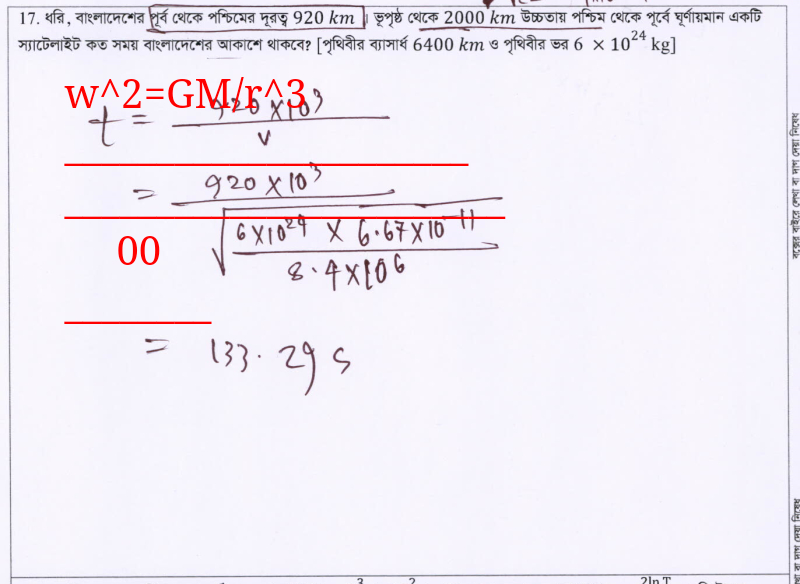 17. ধরি, বাংলাদেশের পূর্ব থেকে পশ্চিমের দূরত্ব 920 km । ভূপৃষ্ঠ থেকে 2000 km উচ্চতায় পশ্চিম থেকে পূর্বে ঘূর্ণায়মান একটি
স্যাটেলাইট কত সময় বাংলাদেশের আকাশে থাকবে? [পৃথিবীর ব্যাসার্ধ 6400 km ও পৃথিবীর ভর 6 × 10^24 kg]
w^2=GM/r^3
t = 920 × 10^3
v
= 920 × 10^3
6×10^24 × 6.67×10^-11
00
8.4×10^6
= 133.29 s
বক্সের বাইরে লেখা বা দাগ দেয়া নিষেধ
বা দাগ দেয়া নিষেধ
3 2 2ln T